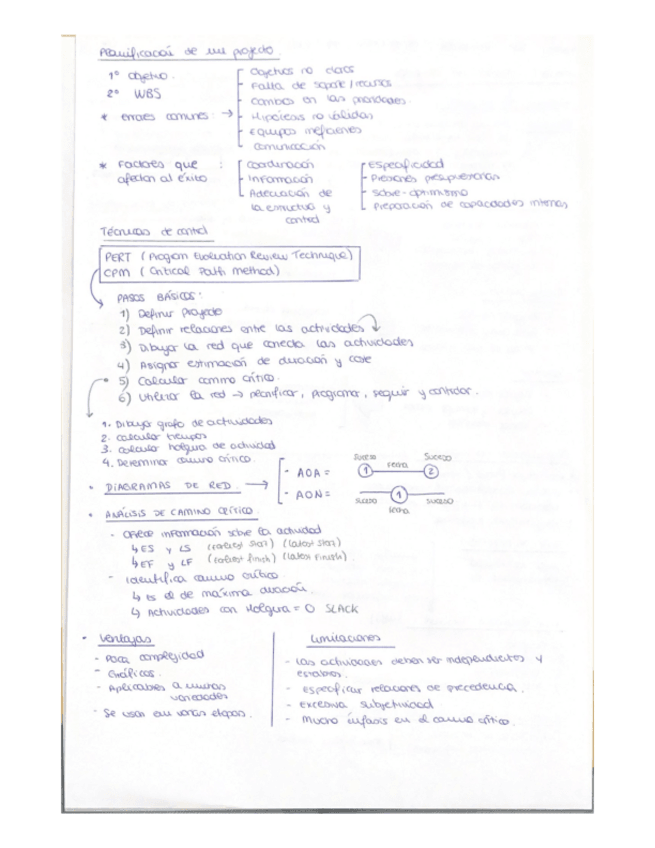 Planificación de un proyecto.
1º Objetivo.
2º WBS
* errores comunes: →
Objetivos no claros
Falta de soporte / recursos
Cambios en las prioridades.
Hipótesis no válidas
equipos ineficientes
comunicación
* Factores que afectan al éxito :
Coordinación
Información
Adecuación de
la estructura y
control
Especificidad
Presiones presupuestarias
Sobre-optimismo
Preparación de capacidades internas
Técnicas de control
PERT (Program Evaluation Review Technique)
CPM (Critical Path method)
PASOS BÁSICOS:
1) Definir Proyecto
2) Definir relaciones entre las actividades
3) Dibujar la red que conecta las actividades
4) Asignar estimación de duración y coste
5) Calcular camino crítico.
6) Utilizar la red → planificar, programar, seguir y controlar.
1. Dibujar grafo de actividades
2. calcular tiempos
3. calcular holgura de actividad
4. Determinar camino crítico.
• DIAGRAMAS DE RED. →
- AOA =
suceso 1 fecha suceso 2
- AON =
suceso 1 suceso
fecha
• ANÁLISIS DE CAMINO CRÍTICO.
- Ofrece información sobre la actividad
↳ ES y LS (earliest start) (latest start)
↳ EF y LF (earliest finish) (latest finish)
- identifica camino crítico.
↳ es el de máxima duración.
↳ Actividades con Holgura = 0 SLACK
• Ventajas
- Poca complejidad
- Gráficos.
- Aplicables a muchas
variedades
- Se usan en varias etapas.
Limitaciones
- Las actividades deben ser independientes y
estables.
- especificar relaciones de precedencia.
- excesiva subjetividad
- Mucho énfasis en el camino crítico.